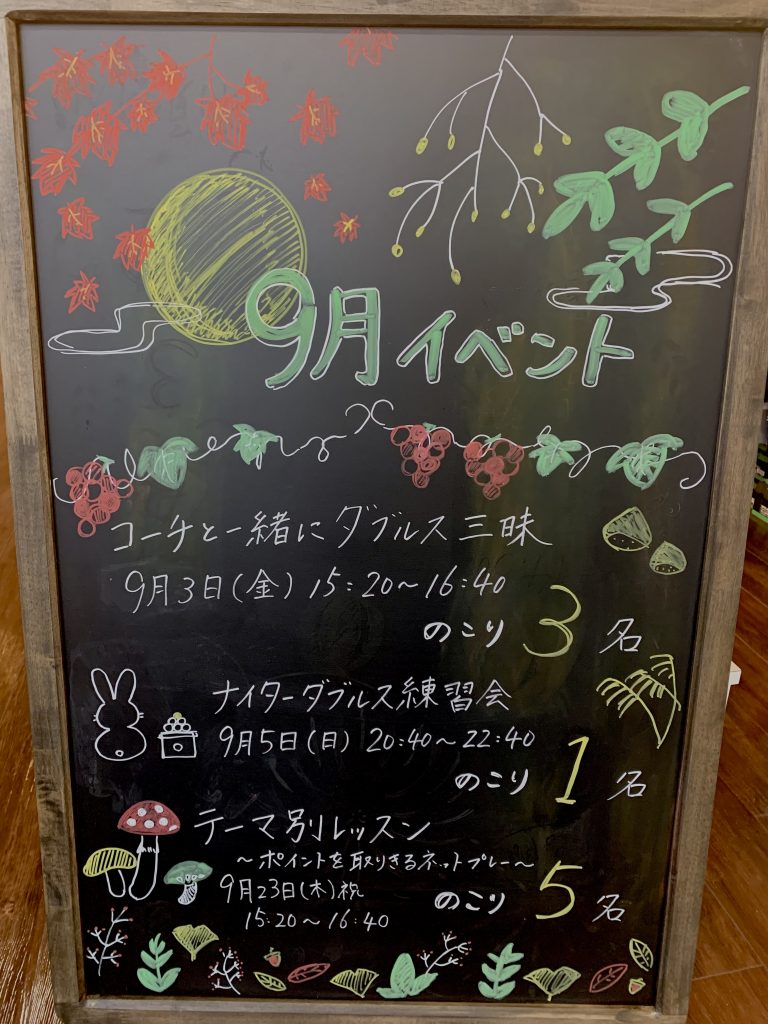 9月イベント
コーチと一緒にダブルス三昧
9月3日(金) 15:20〜16:40
のこり 3 名
ナイターダブルス練習会
9月5日(日) 20:40〜22:40
のこり 1 名
テーマ別レッスン
〜ポイントを取りきるネットプレー〜
9月23日(木)祝
のこり 5 名
15:20〜16:40